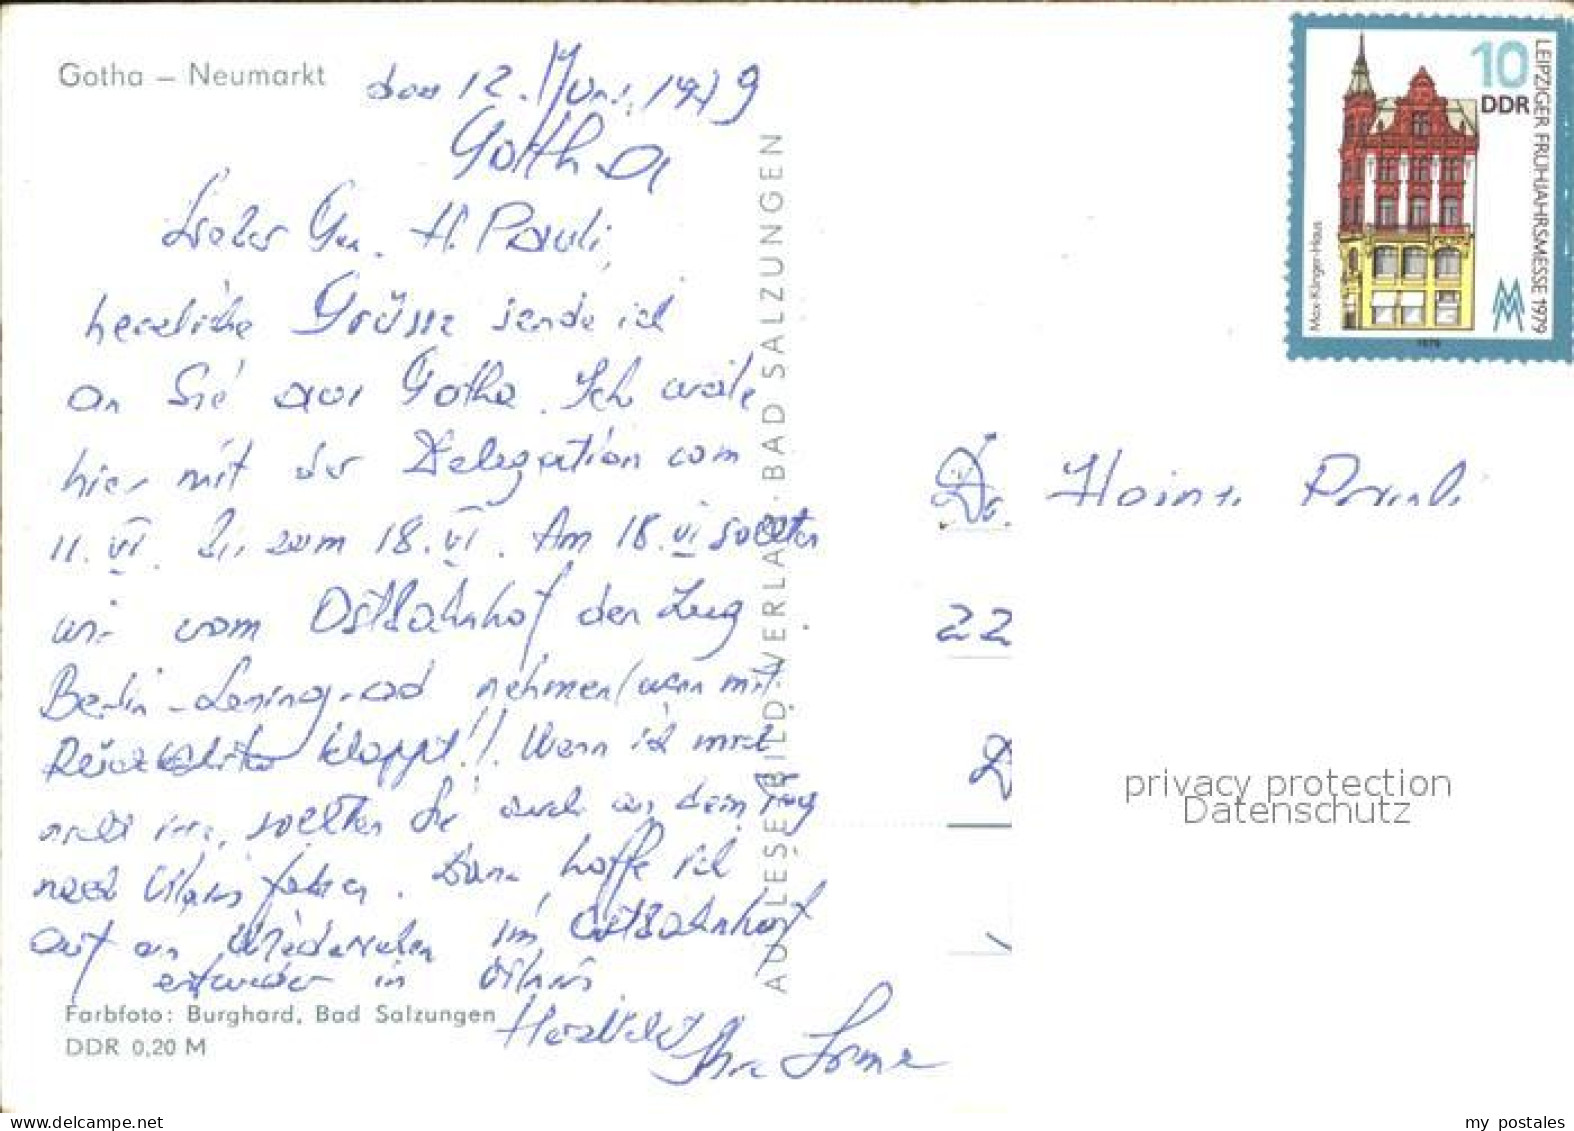 Gotha – Neumarkt
den 12. Juni 1979
Gotha
Lieber Gen. H. Pauli,
herzliche Grüsse sende ich
an Sie aus Gotha. Ich weile
hier mit der Delegation vom
11. VI. zum 18. VI. Am 18. VI sollten
wir vom Ostbahnhof den Zug
Berlin - Leningrad nehmen (wenn mit
klappt!). Wenn ich mich
sollten Sie auch an dem Tag
nach fahren. Dann hoffe ich
auf ein Wiedersehen im Ostbahnhof
entweder in
Herzlichst
Ihre
Farbfoto: Burghard, Bad Salzungen
DDR 0,20 M
AUSLESE-BILD-VERLAG·BAD SALZUNGEN
10
DDR
LEIPZIGER FRÜHJAHRSMESSE 1979
Max-Klinger-Haus
1979
MM
Dr. Heinz Pauli
22
D
privacy protection
Datenschutz
my postales